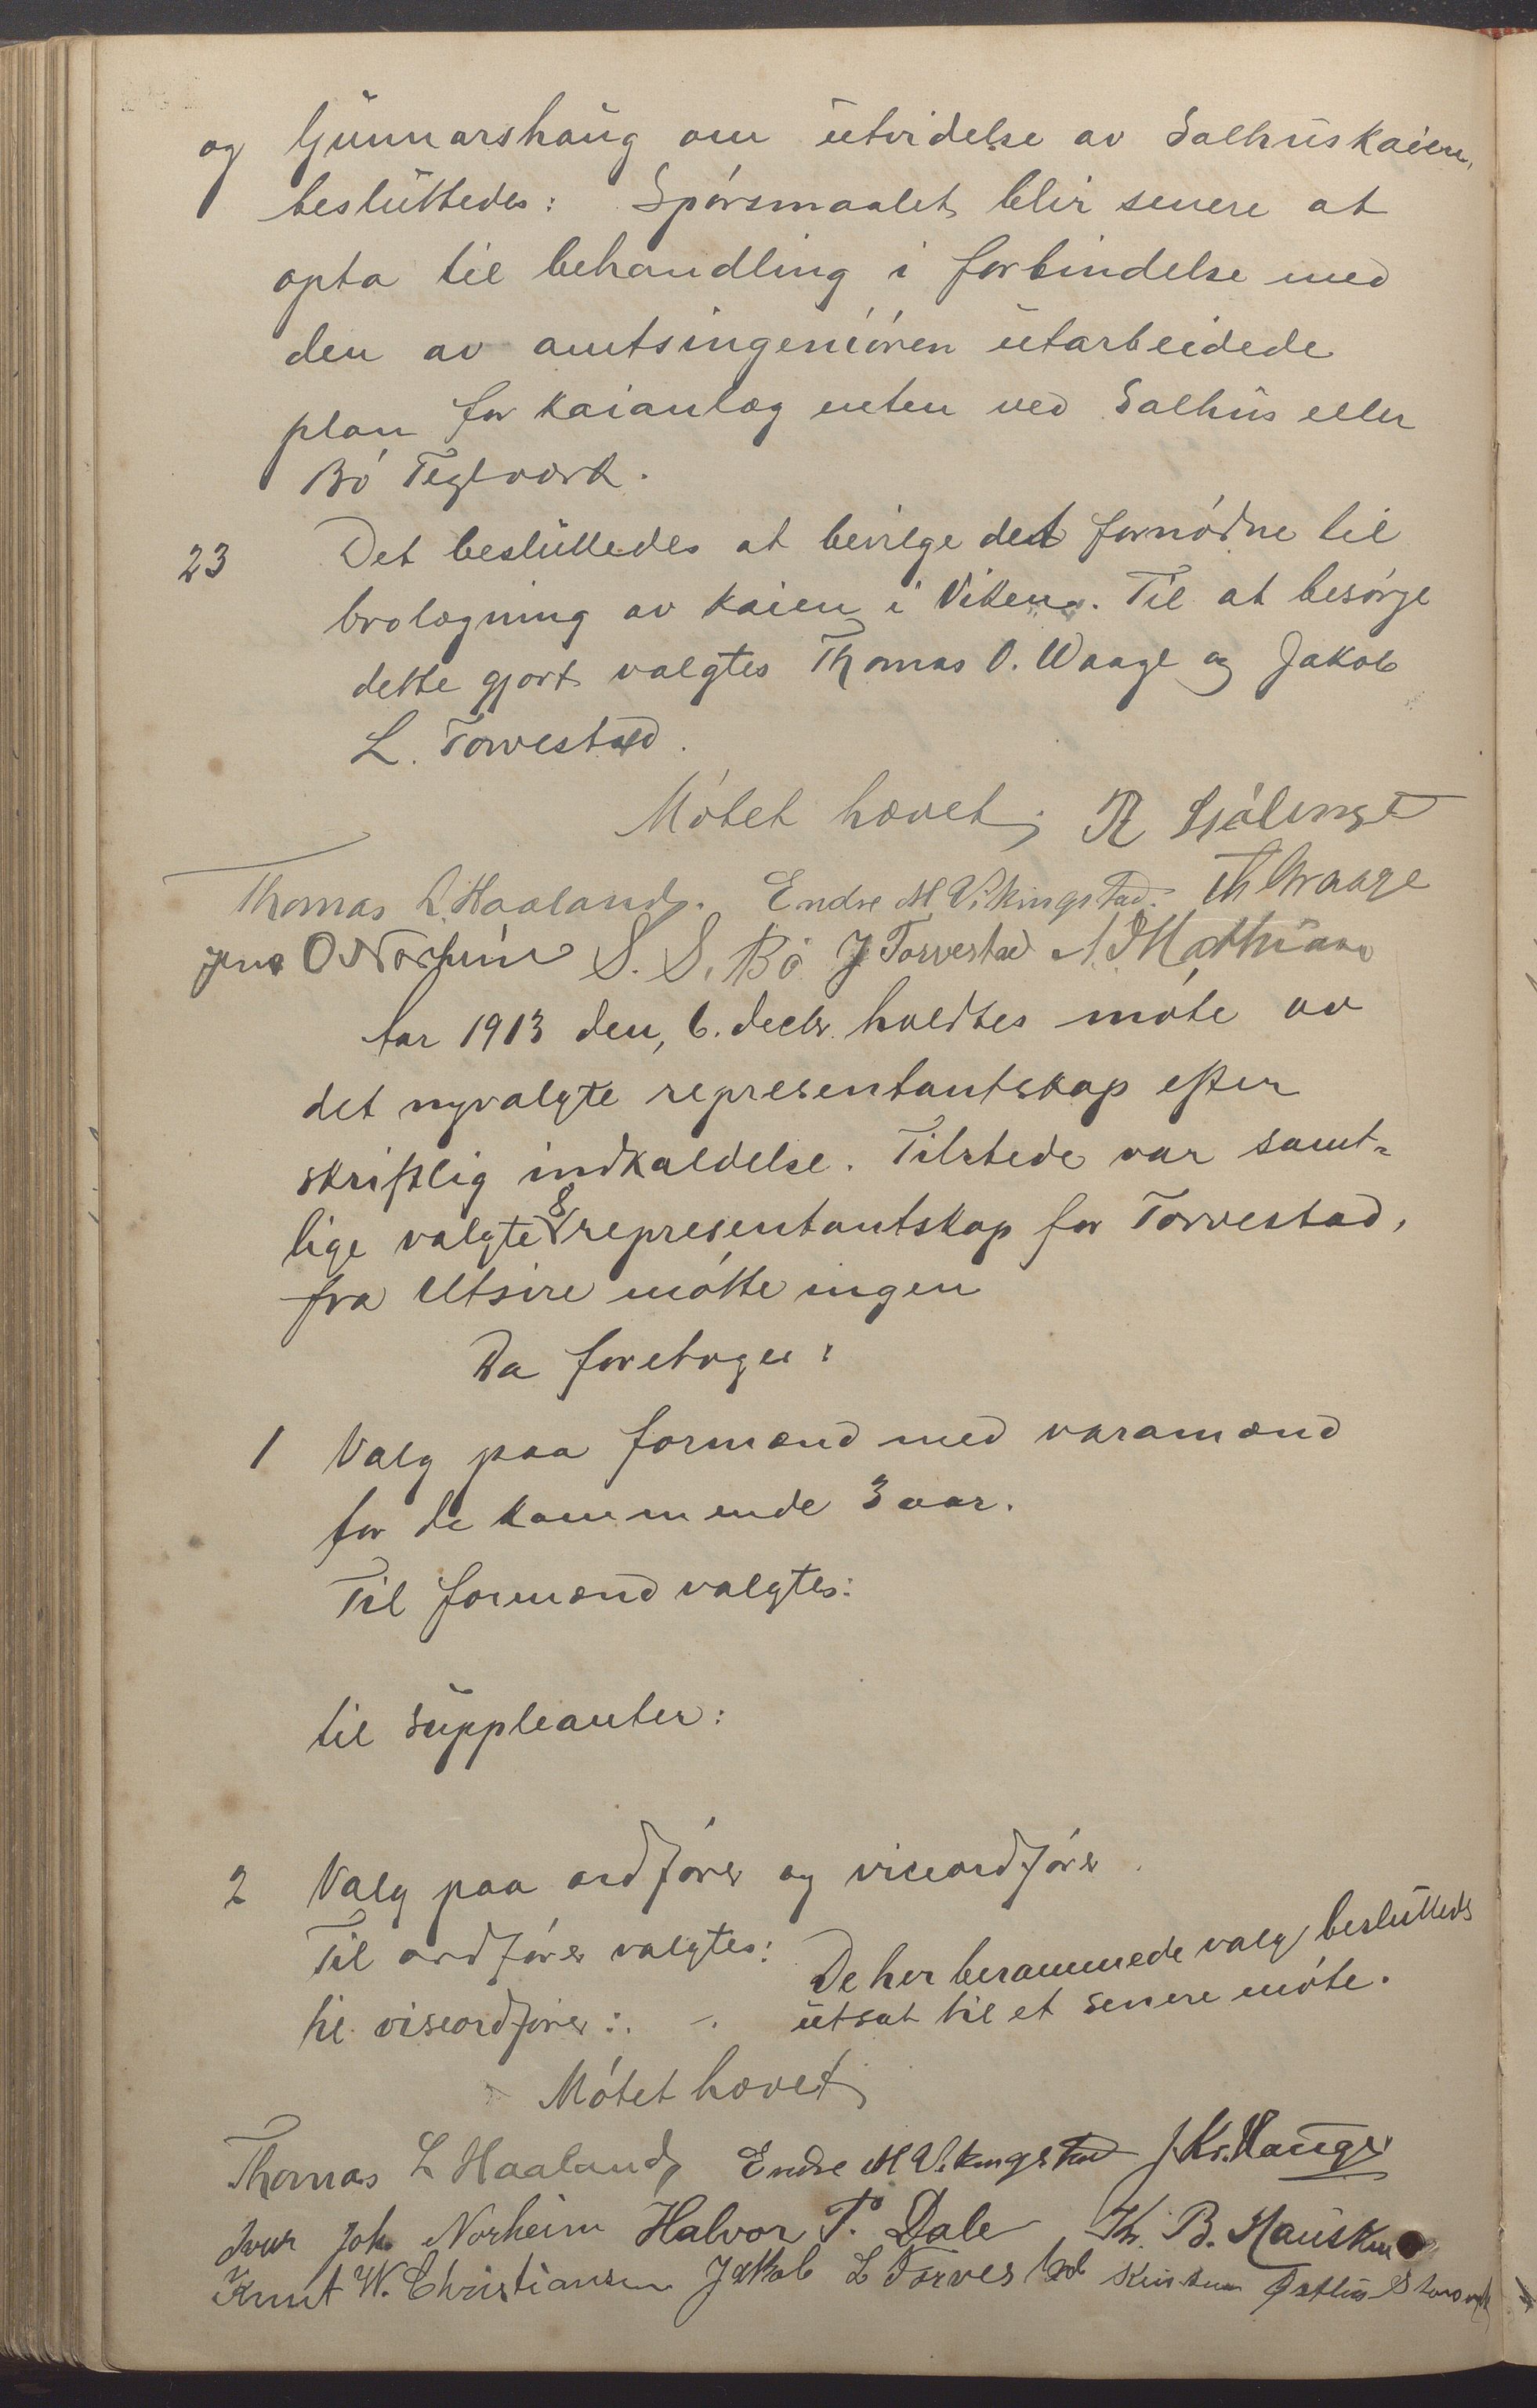 og Gunnarshaug om utvidelse av Salhuskaien,
besluttedes: Spórsmaalet blir senere at
opta til behandling i forbindelse med
den av amtsingeniören utarbeidede
plan for kaianlæg enten ved Salhus eller
Bö Teglværk.
23 Det besluttedes at bevilge det fornödne til
brolægning av kaien i Viken. Til at besörge
dette gjort valgtes Thomas O. Waage og Jakob
L. Torvestad.
Mötet hævet;
Thomas L. Haaland. Endre M. Vikingstad. Th Waage
O Norheim S. S. Bö J Torvestad
Aar 1913 den, 6. decbr. holdtes möte av
det nyvalgte representantskap efter
skriftlig indkaldelse. Tilstede var samt-
lige valgte 8 representantskap for Torvestad,
fra Utsire mötte ingen
Da foretoges:
1 Valg paa formænd med varamænd
for de kommende 3 aar.
Til formænd valgtes:
til suppleanter:
2 Valg paa ordförer og viceordförer.
Til ordförer valgtes: De her berammede valg besluttedes
til viseordförer: utsat til et senere möte.
Mötet hævet
Thomas L Haaland, Endre M Vikingstad J. Kr. Hauge
Joh. Norheim Halvor T. Dale Th. B. Hausken
Knut W. Christiansen Jakob L Torvestad